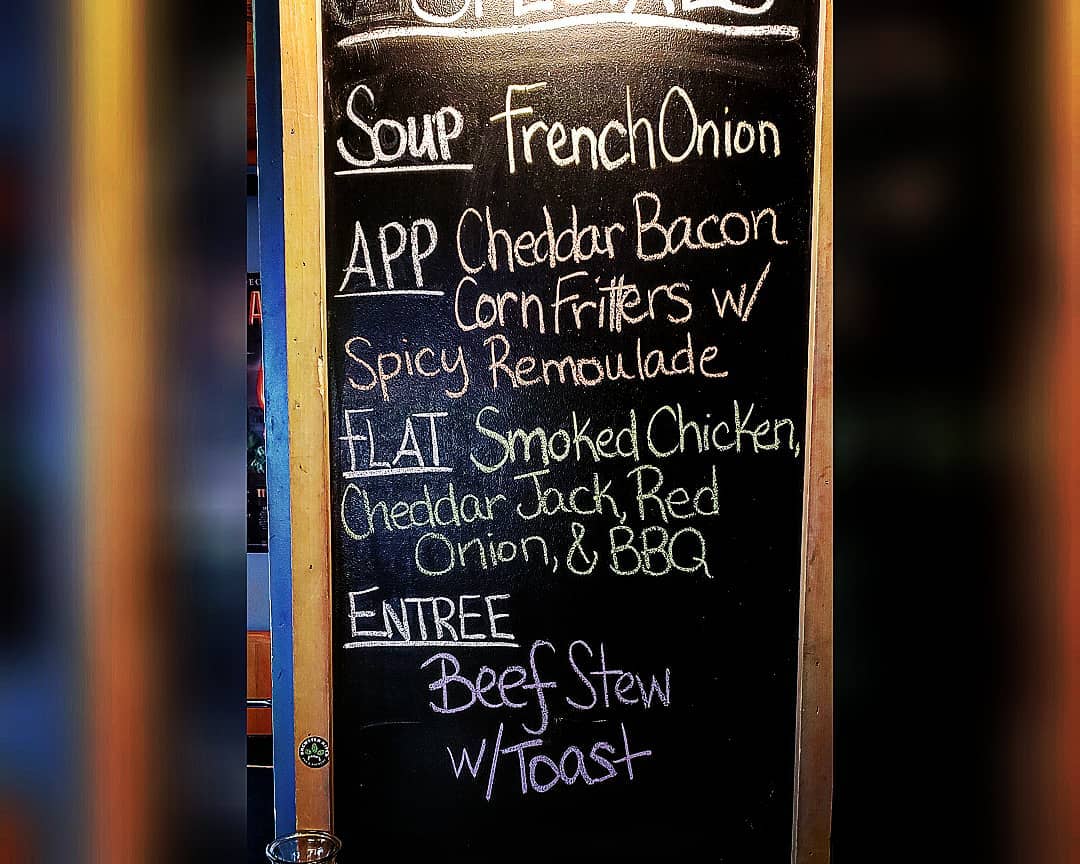 SPECIALS
Soup French Onion
APP Cheddar Bacon
Corn Fritters w/
Spicy Remoulade
FLAT Smoked Chicken,
Cheddar Jack, Red
Onion, & BBQ
ENTREE
Beef Stew
w/Toast